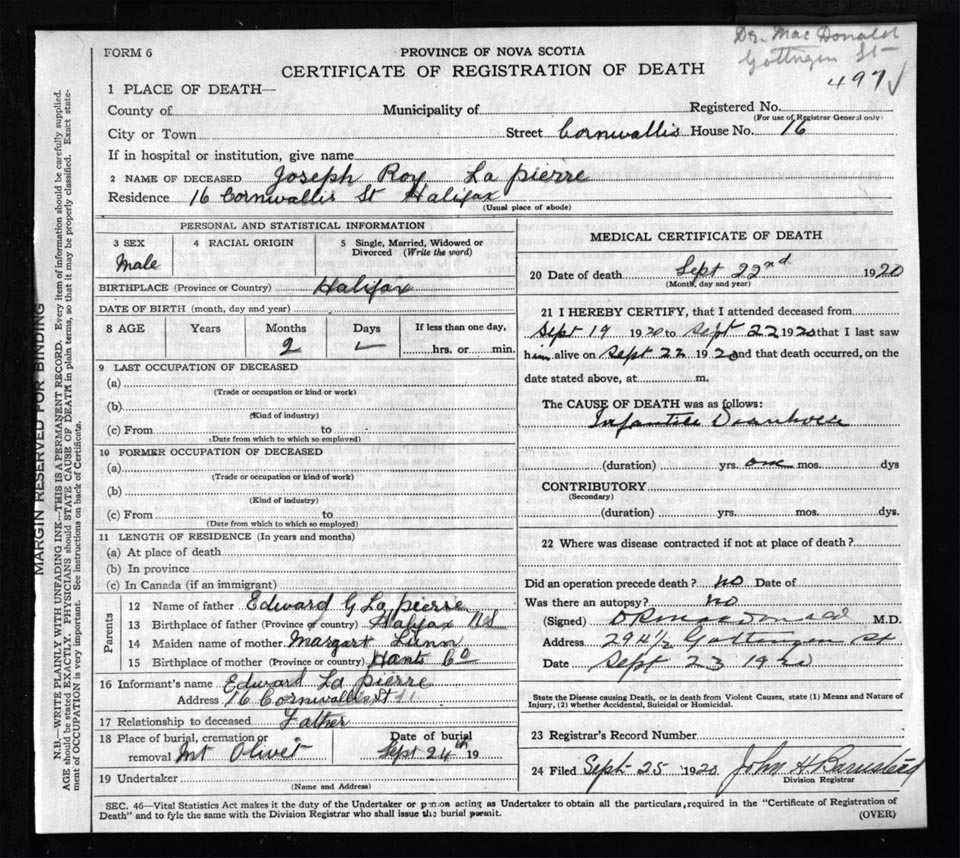 Dr. MacDonald
Gottingen St
497
FORM 6
PROVINCE OF NOVA SCOTIA
CERTIFICATE OF REGISTRATION OF DEATH
MARGIN RESERVED FOR BINDING
N.B.—WRITE PLAINLY WITH UNFADING INK—THIS IS A PERMANENT RECORD. Every item of information should be carefully supplied.
AGE should be stated EXACTLY. PHYSICIANS should STATE CAUSE OF DEATH in plain terms, so that it may be properly classified. Exact state-
ment of OCCUPATION is very important. See instructions on back of Certificate.
1 PLACE OF DEATH—
County of Municipality of Registered No.
(For use of Registrar General only)
City or Town Street Cornwallis House No. 16
If in hospital or institution, give name
2 NAME OF DECEASED Joseph Roy La pierre
Residence 16 Cornwallis St Halifax
(Usual place of abode)
PERSONAL AND STATISTICAL INFORMATION
3 SEX 4 RACIAL ORIGIN 5 Single, Married, Widowed or
Divorced (Write the word)
Male
BIRTHPLACE (Province or Country) Halifax
DATE OF BIRTH (month, day and year)
8 AGE Years Months Days If less than one day,
2 hrs. or min.
9 LAST OCCUPATION OF DECEASED
(a)
(Trade or occupation or kind or work)
(b)
(Kind of industry)
(c) From to
(Date from which to which so employed)
10 FORMER OCCUPATION OF DECEASED
(a)
(Trade or occupation or kind of work)
(b)
(Kind of industry)
(c) From to
(Date from which to which so employed)
11 LENGTH OF RESIDENCE (In years and months)
(a) At place of death
(b) In province
(c) In Canada (if an immigrant)
Parents
12 Name of father Edward G La pierre
13 Birthplace of father (Province or country) Halifax N S
14 Maiden name of mother Margart Lunn
15 Birthplace of mother (Province or country) Hants Co
16 Informant's name Edward La pierre
Address 16 Cornwallis St
17 Relationship to deceased Father
18 Place of burial, cremation or Date of burial
removal Mt Olivet Sept 24th 19
19 Undertaker
(Name and Address)
MEDICAL CERTIFICATE OF DEATH
20 Date of death Sept 22nd 1920
(Month, day and year)
21 I HEREBY CERTIFY, that I attended deceased from
Sept 19 1920 to Sept 22 1920 that I last saw
him alive on Sept 22 1920 and that death occurred, on the
date stated above, at m.
The CAUSE OF DEATH was as follows:
Infantile Diarrhoea
(duration) yrs. one mos. dys
CONTRIBUTORY
(Secondary)
(duration) yrs. mos. dys.
22 Where was disease contracted if not at place of death?
Did an operation precede death? no Date of
Was there an autopsy? no
(Signed) D R MacDonald M.D.
Address 294½ Gottingen St
Date Sept 23 1920
State the Disease causing Death, or in death from Violent Causes, state (1) Means and Nature of
Injury, (2) whether Accidental, Suicidal or Homicidal.
23 Registrar's Record Number
24 Filed Sept 25 1920 John H Barnstead
Division Registrar
SEC. 46—Vital Statistics Act makes it the duty of the Undertaker or person acting as Undertaker to obtain all the particulars required in the "Certificate of Registration of
Death" and to fyle the same with the Division Registrar who shall issue the burial permit. (OVER)